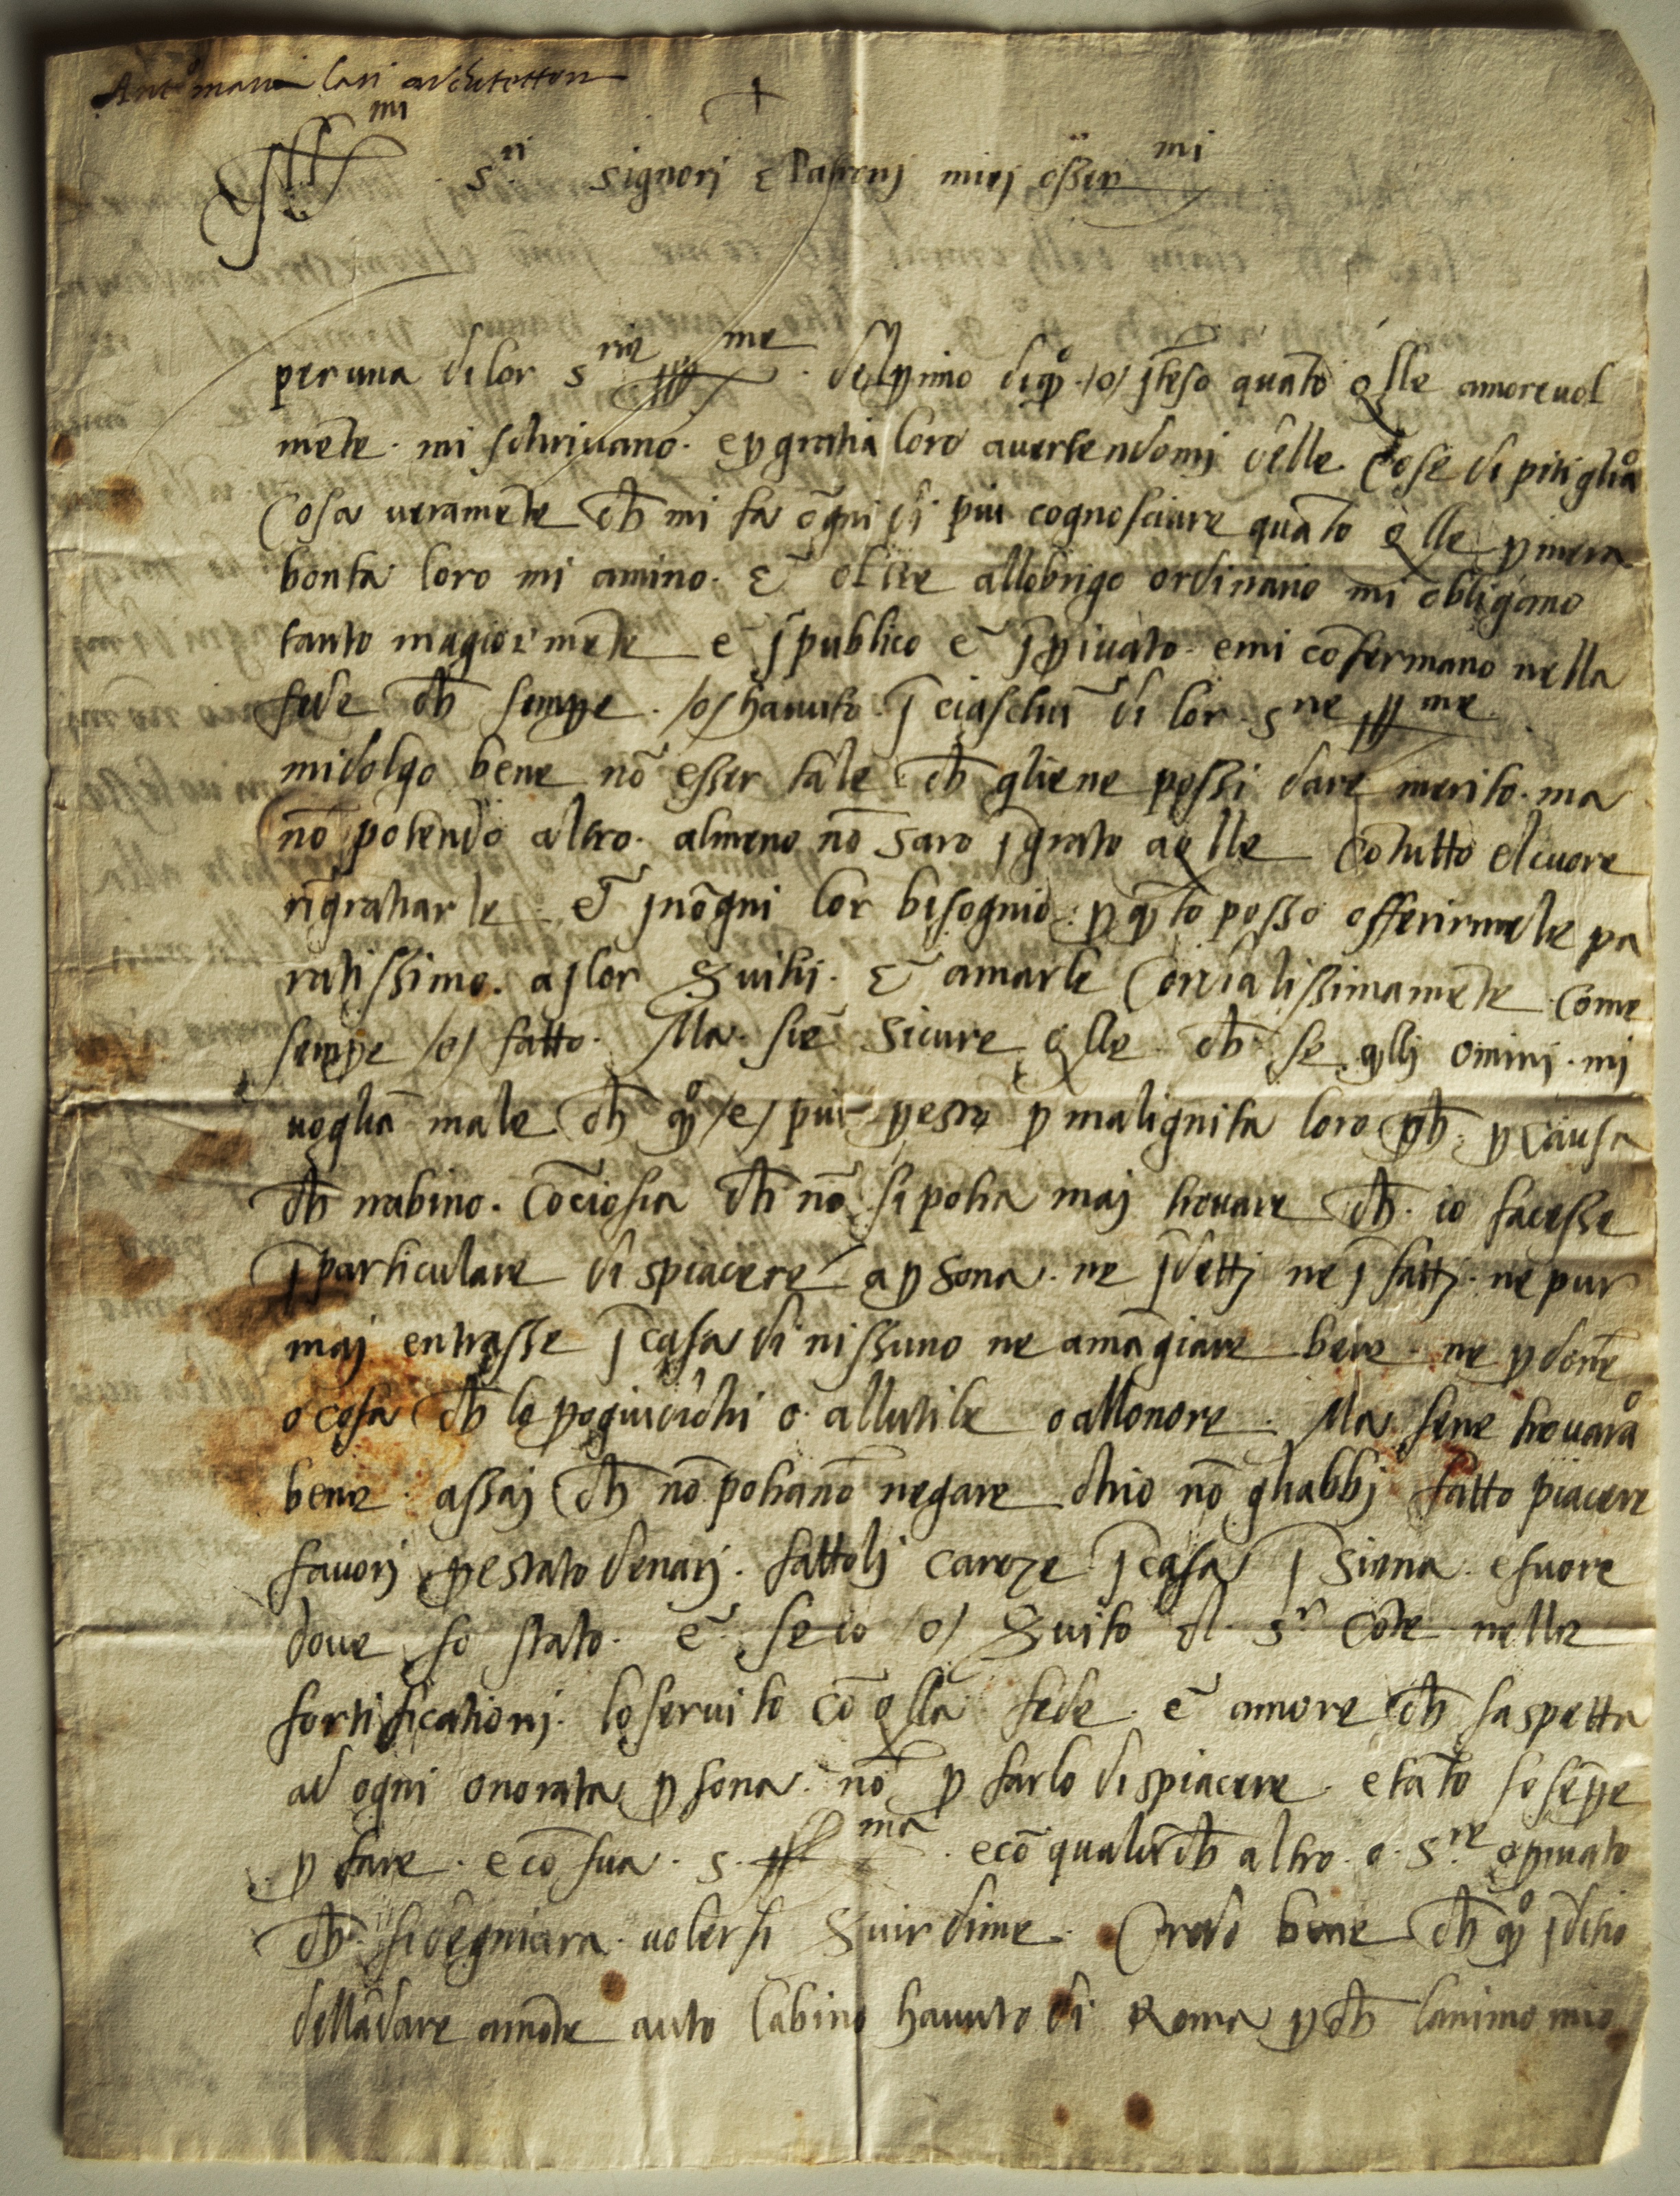 Ant.o maria Lari architettore
+
Ill mi S.ri Signori e Patronj miej osser mi
per una di lor S rie Ill me del pimo di qo /o/ jteso quāto qlle amorevol
mēte. mi schrivano. e p gratia loro avertendomi delle cose di pitigliao
Cosa veramēte ch mi fa ōgni di piu cognosciare quāto qlle p mera
bonta loro mi amino. E oltre allobrigo ordinario mi obligano
tanto magiormēte e j publico e j pivato. e mi cōfermano nella
fede ch sempe. /o/ havuto j ciaschū di lor S rie Ill me
mi dolgo bene nō esser tale ch gliene possi dare merito. ma
nō potendo altro. almeno nō saro jgrato a qlle Cō tutto el cuore
rīgratiarle. E jnōgni lor bisognio. p qto posso offerirmele pa
ratissimo. a j lor Suitij. E amarle Cordialissimamēte Come
sempe /o/ fatto. Ma. siē sicure qlle ch se qllj omini. mi
vogliā male ch qo /e/ piu pesto p malignita loro ch p causa
ch nabino. Cōciosia ch nō si potra maj trovare ch. io facesse
j particulare dispiacere a psona. ne jdettj ne j fattj. ne pur
maj entrasse j casa di nissuno ne a māgiare bere ne p dōne
o cosa ch lo pogiudichi o. allutile o allonore. Ma sene trovarāo
bene assaj ch nō potranō negare chio nō ghabbj fatto piacere
favorj pestato denarj. fattolj careze j casa j Siena e fuore
dove so stato. e se io /o/ Suito el S.r Cōte nelle
fortificationj. lo servito cō qlla fede e amore ch saspetta
ad ogni onorata psona. nō p farlo dispiacere. e tāto so sēpe
p fare. e cō sua. S. Ill ma. e cō qualūch altro. o. S.re o pivato
ch. si degniara. volersi Suir di me. Credo bene ch qo jditio
dellādare a mōte auto Labino havuto di Roma p ch lanimo mio